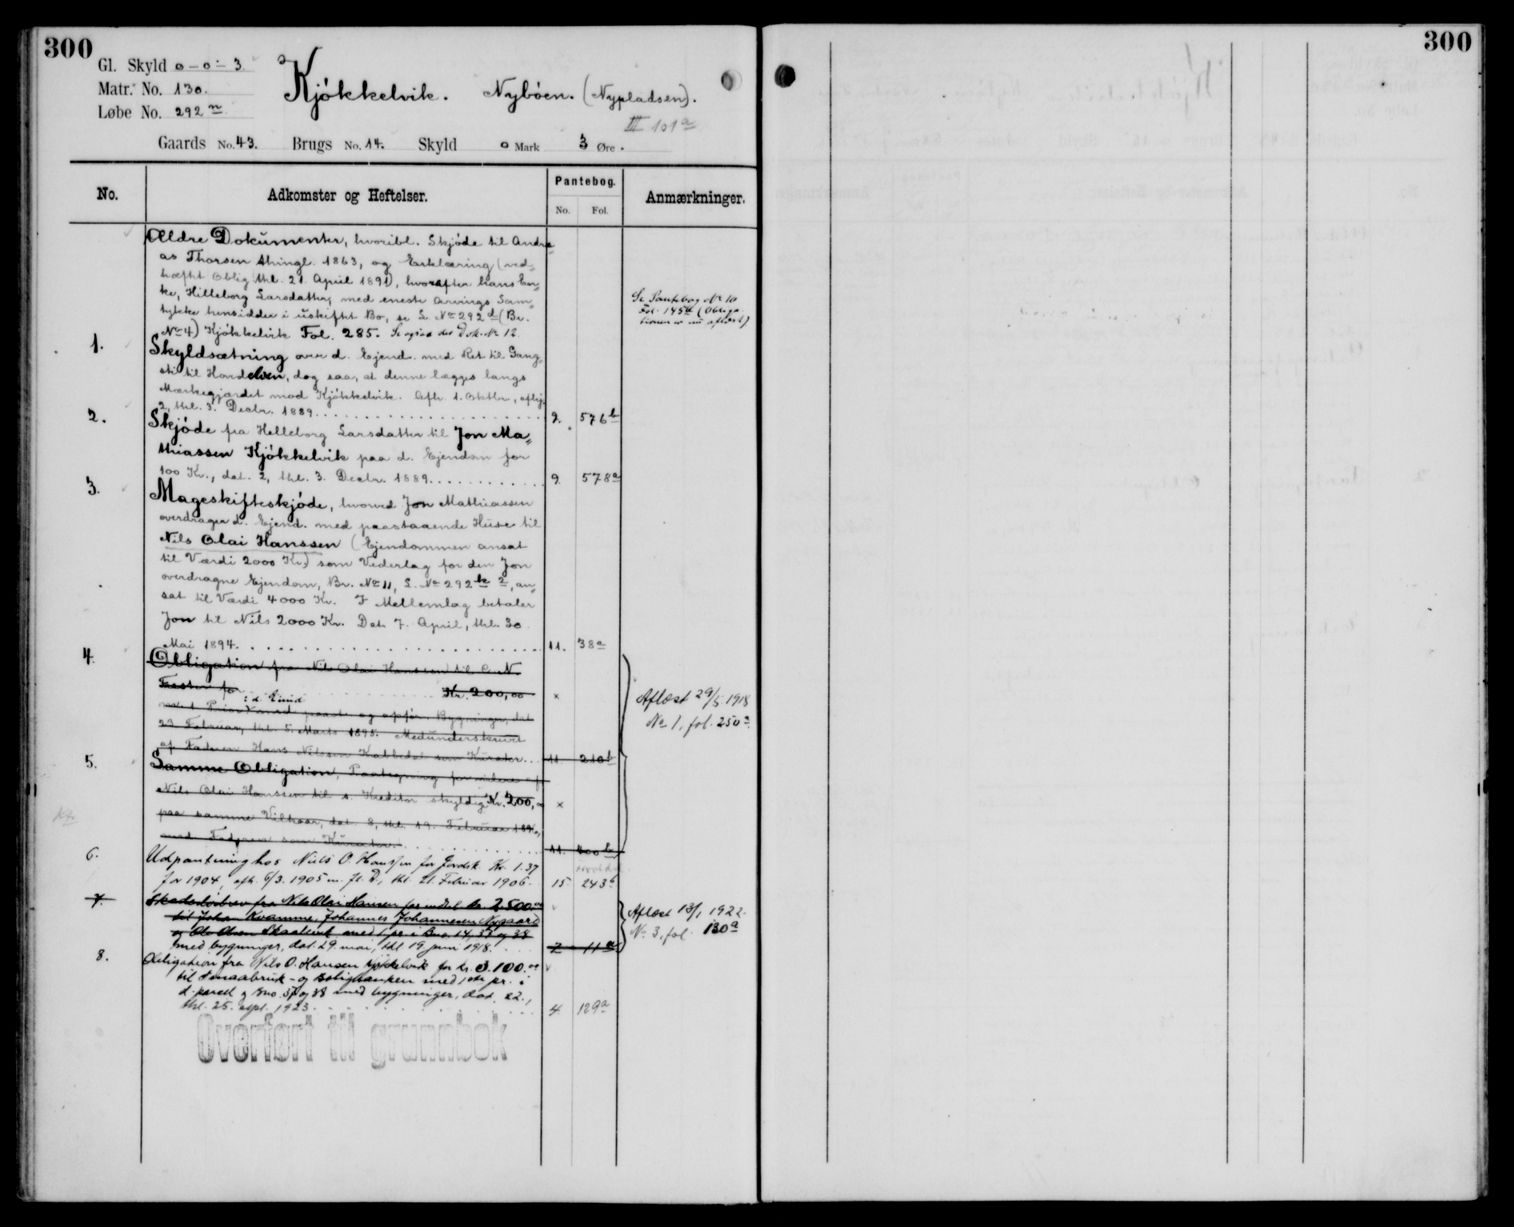 300
300
Gl. Skyld 0-0-3
Matr. No. 130.
Løbe No. 292 m
Kjökkelvik. Nyböen. (Nypladsen).
III 101a
Gaards No. 43. Brugs No. 14. Skyld 0 Mark 3 Øre.
No. Adkomster og Heftelser. Pantebog. Anmærkninger.
No. Fol.
Ældre Dokumenter, hvoribl. Skjöde til Andre
as Thorsen thingl. 1863, og Erklæring (ved-
hæftet Oblig thl. 21 April 1891), hvorefter hans En-
ke, Hilleborg Larsdatter, med eneste Arvings Sam-
tykke hensidder i uskiftet Bo, se L. No 292 d (Br.
No 4) Kjökkelvik Fol. 285. Se ogsaa der Dok. No 12
Se Pantebog No 10
Fol. 145b (Obliga
tionen er nu aflæst)
1. Skyldsætning over d. Ejend. med Ret til Gang-
sti til Hovedelven, dog saa, at denne lægges langs
Markegjærdet mod Kjökkelvik. Afh. 1. Oktbr., aflyst
2, thl. 3. Decbr. 1889. 9. 576b
2. Skjöde fra Helleborg Larsdatter til Jon Ma-
thiassen Kjökkelvik paa d. Ejendom for
100 Kr., dat. 2, thl. 3. Decbr. 1889. 9 578a
3. Mageskifteskjöde, hvorved Jon Mathiassen
overdrager d. Ejend. med paastaaende Huse til
Nils Olai Hanssen (Ejendommen ansat
til Værdi 2000 Kr.) som Vederlag for den Jon
overdragne Ejendom, Br. No 11, L. No 292, an-
sat til Værdi 4000 Kr. I Mellemlag betaler
Jon til Nils 2000 Kr. Dat. 7. April, thl. 30
Mai 1894. 11. 38a
4. Obligation fra Nils Olai Hanssen til C. N.
for Kr. 200,00 x
: d. Eiend
med Prior. med paast. og opför. Bygninger, dat
23 Februar, thl. 5. Marts 1895. Medunderskrevet
af Faderen Hans Nilssen som Kurator. 11 210b
Aflæst 29/5 1918
No 1, fol. 250a.
5. Samme Obligation, Paategning
Nils Olai Hanssen til s. Kreditor skyldig Kr. 200, x
paa samme Vilkaar, dat. 8, thl. 19. Februar
med Faderen som Kurator. 11. 400b
6. Udpantning hos Nils O. Hanssen for Jordsk. Kr. 1.37
for 1904, afh. 6/3. 1905 m. fl. D, thl. 21. Februar 1906. 15 243b
7. Skadesløsbrev fra Nils Olai Hansen for indtil kr. 2,500.00
til John Kvamme, Johannes Johannesen Nygaard
og Ole Olsen Skaalevik med 1 pr. i Bno 14, 37 og 38
med bygninger, dat 29 mai, thl 19 juni 1918. 2 11a
Aflæst 13/1 1922.
No 3, fol 130a
8. Obligation fra Nils O. Hansen Kjökkelvik for kr. 3.100.00
til Smaabruk- og Boligbanken med 1ste pr. i
d. parcel og Bno. 37 og 38 med bygninger, dat. 22.,
thl. 25. sept. 1923. 4 129a
Overført til grunnbok